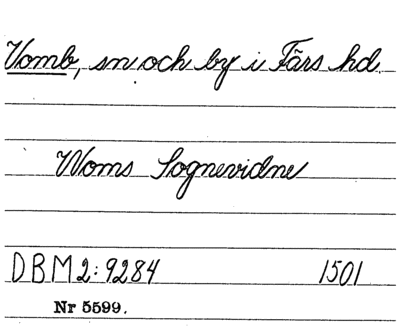 Vomb, sn och by i Färs hd.
Woms Sognevidne
DBM2:9284 1501
Nr 5599.